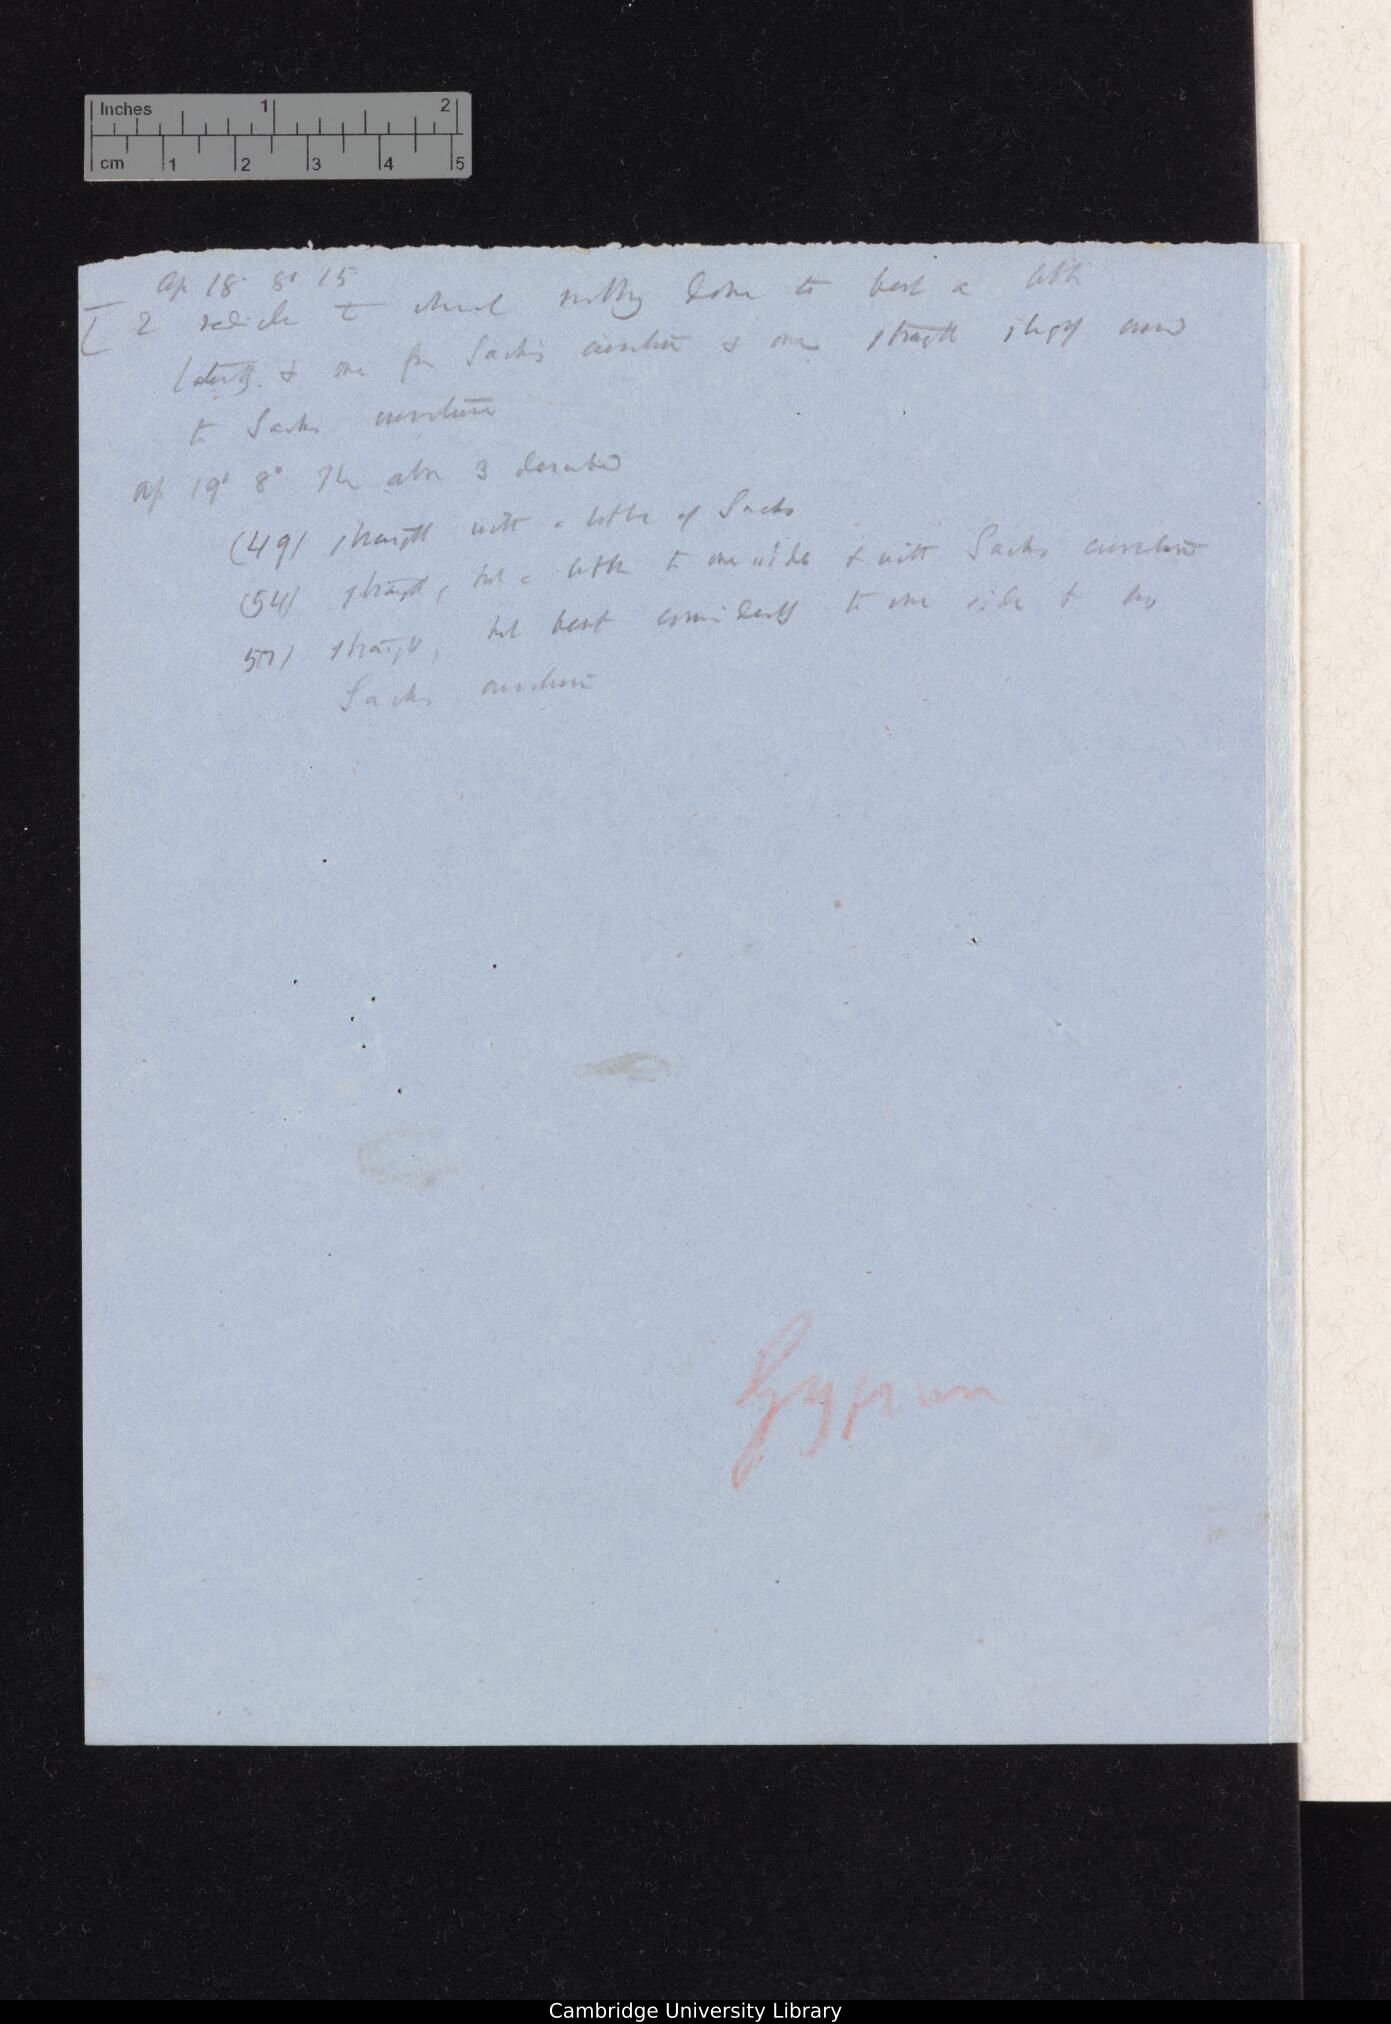 Inches 1 2
cm 1 2 3 4 5
Ap 18. 8° 15'
[ 2 radicle to which nothing done to bent a little
laterally & one for Sachs' curvature & one straight
to Sachs curvature
Ap 19° 8° The above 3 described
(49) straight with a little of Sachs
(54) straight, but a little to one side & with Sachs curvature
57) straight, but bent considerably to one side & no
Sachs curvature
Cambridge University Library